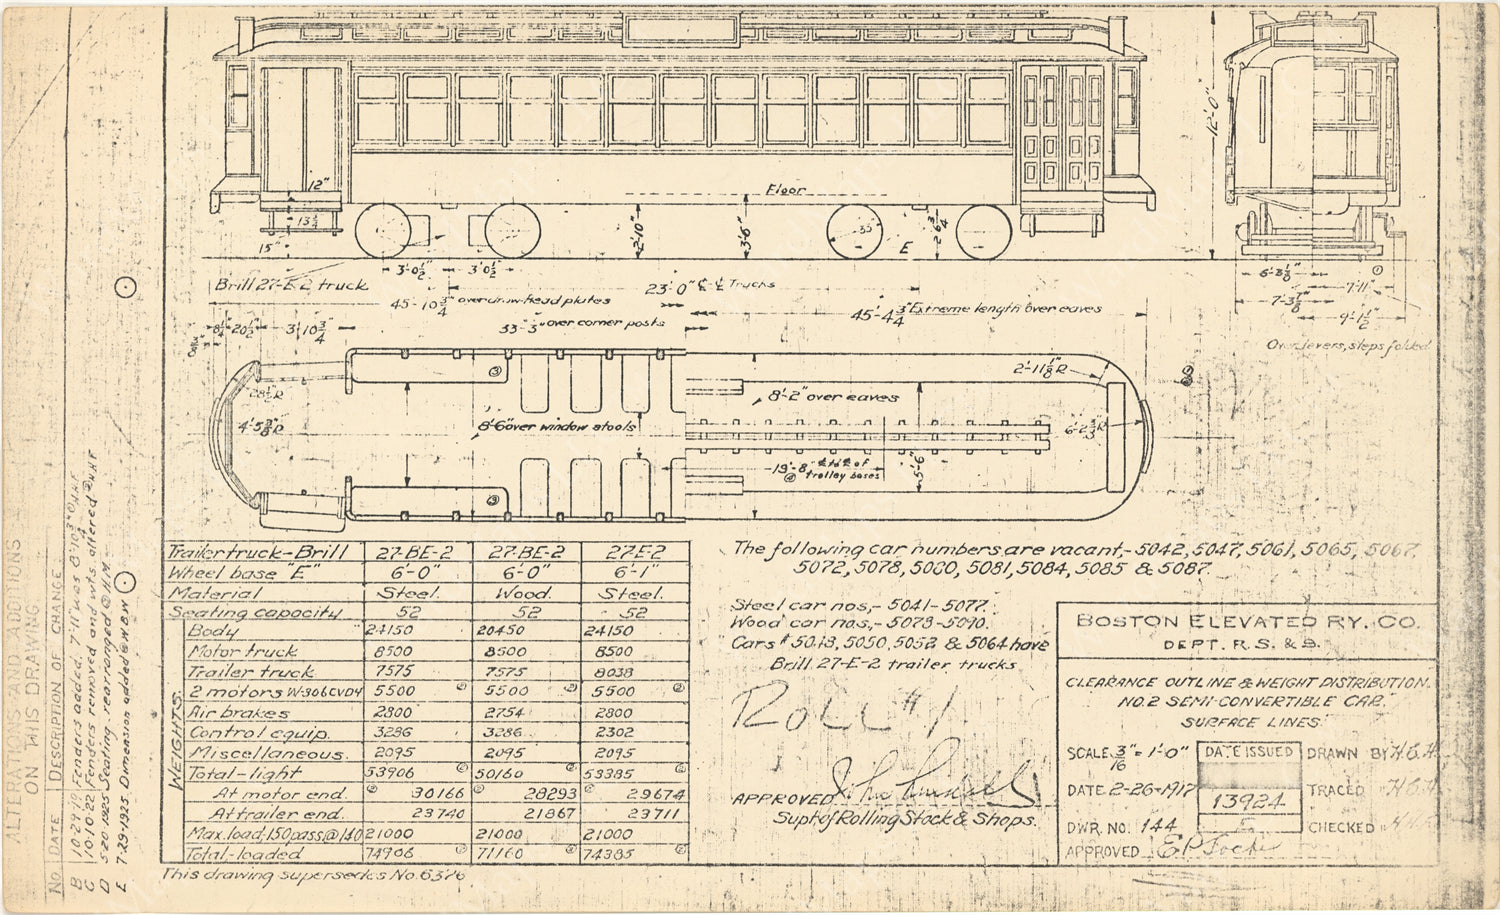 12'-0"
Floor
12"
13¼
15"
2'-10"
3'-6"
33"
E
2'-6¾"
3'-0½"
3'-0½"
6'-8⅛"
Brill 27-E-2 truck
23'-0" ℄-℄ Trucks
7'-11"
7'-3⅜"
45'-10¾" over draw-head plates
45'-4¾" Extreme length over eaves
9'-1½"
33'-3" over corner posts
20½"
3'10¾"
Over fevers, steps folded
2'-11⅛"R
28½R
8'-2" over eaves
4'-5⅜"R
8'-6" over window stools
19'-8" ℄ to ℄ of
trolley bases
5'-6"
Trailer truck-Brill 27-BE-2 27-BE-2 27-E-2
Wheel base "E" 6'-0" 6'-0" 6'-1"
Material Steel. Wood. Steel.
Seating capacity 52 52 52
WEIGHTS.
Body 24150 20450 24150
Motor truck 8500 8500 8500
Trailer truck 7575 7575 8038
2 motors W-306CVD4 5500 5500 5500
Air brakes 2800 2754 2800
Control equip. 3286 3286 2302
Miscellaneous. 2095 2095 2095
Total-light 53906 50160 53385
At motor end. 30166 28293 29674
At trailer end. 23740 21867 23711
Max. load, 150 pass @ 140 21000 21000 21000
Total-loaded 74906 71160 74385
This drawing supersedes No. 6376
The following car numbers are vacant,- 5042, 5047, 5061, 5065, 5067,
5072, 5078, 5080, 5081, 5084, 5085 & 5087.
Steel car nos,- 5041-5077.
Wood car nos,- 5078-5090.
Cars # 5048, 5050, 5052 & 5064 have
Brill 27-E-2 trailer trucks.
Roll #1
APPROVED
Supt of Rolling Stock & Shops.
BOSTON ELEVATED RY. CO.
DEPT. R. S. & B.
CLEARANCE OUTLINE & WEIGHT DISTRIBUTION.
NO. 2 SEMI-CONVERTIBLE CAR.
SURFACE LINES.
SCALE 3/16" = 1'-0"
DATE 2-26-1917
DWR. NO. 144
APPROVED
DATE ISSUED
13924
E
DRAWN BY H.C.H.
TRACED H.C.H.
CHECKED
ALTERATIONS AND ADDITIONS
ON THIS DRAWING
NO. DATE DESCRIPTION OF CHANGE.
B 10-29-19 Fenders added. 7'11" was 8'10¾" O.H.F.
C 10-10-22 Fenders removed and wts. altered H.H.F.
D 5-20-1925 Seating rearranged H.M.
E 7-29-1925 Dimension added W.B.W.